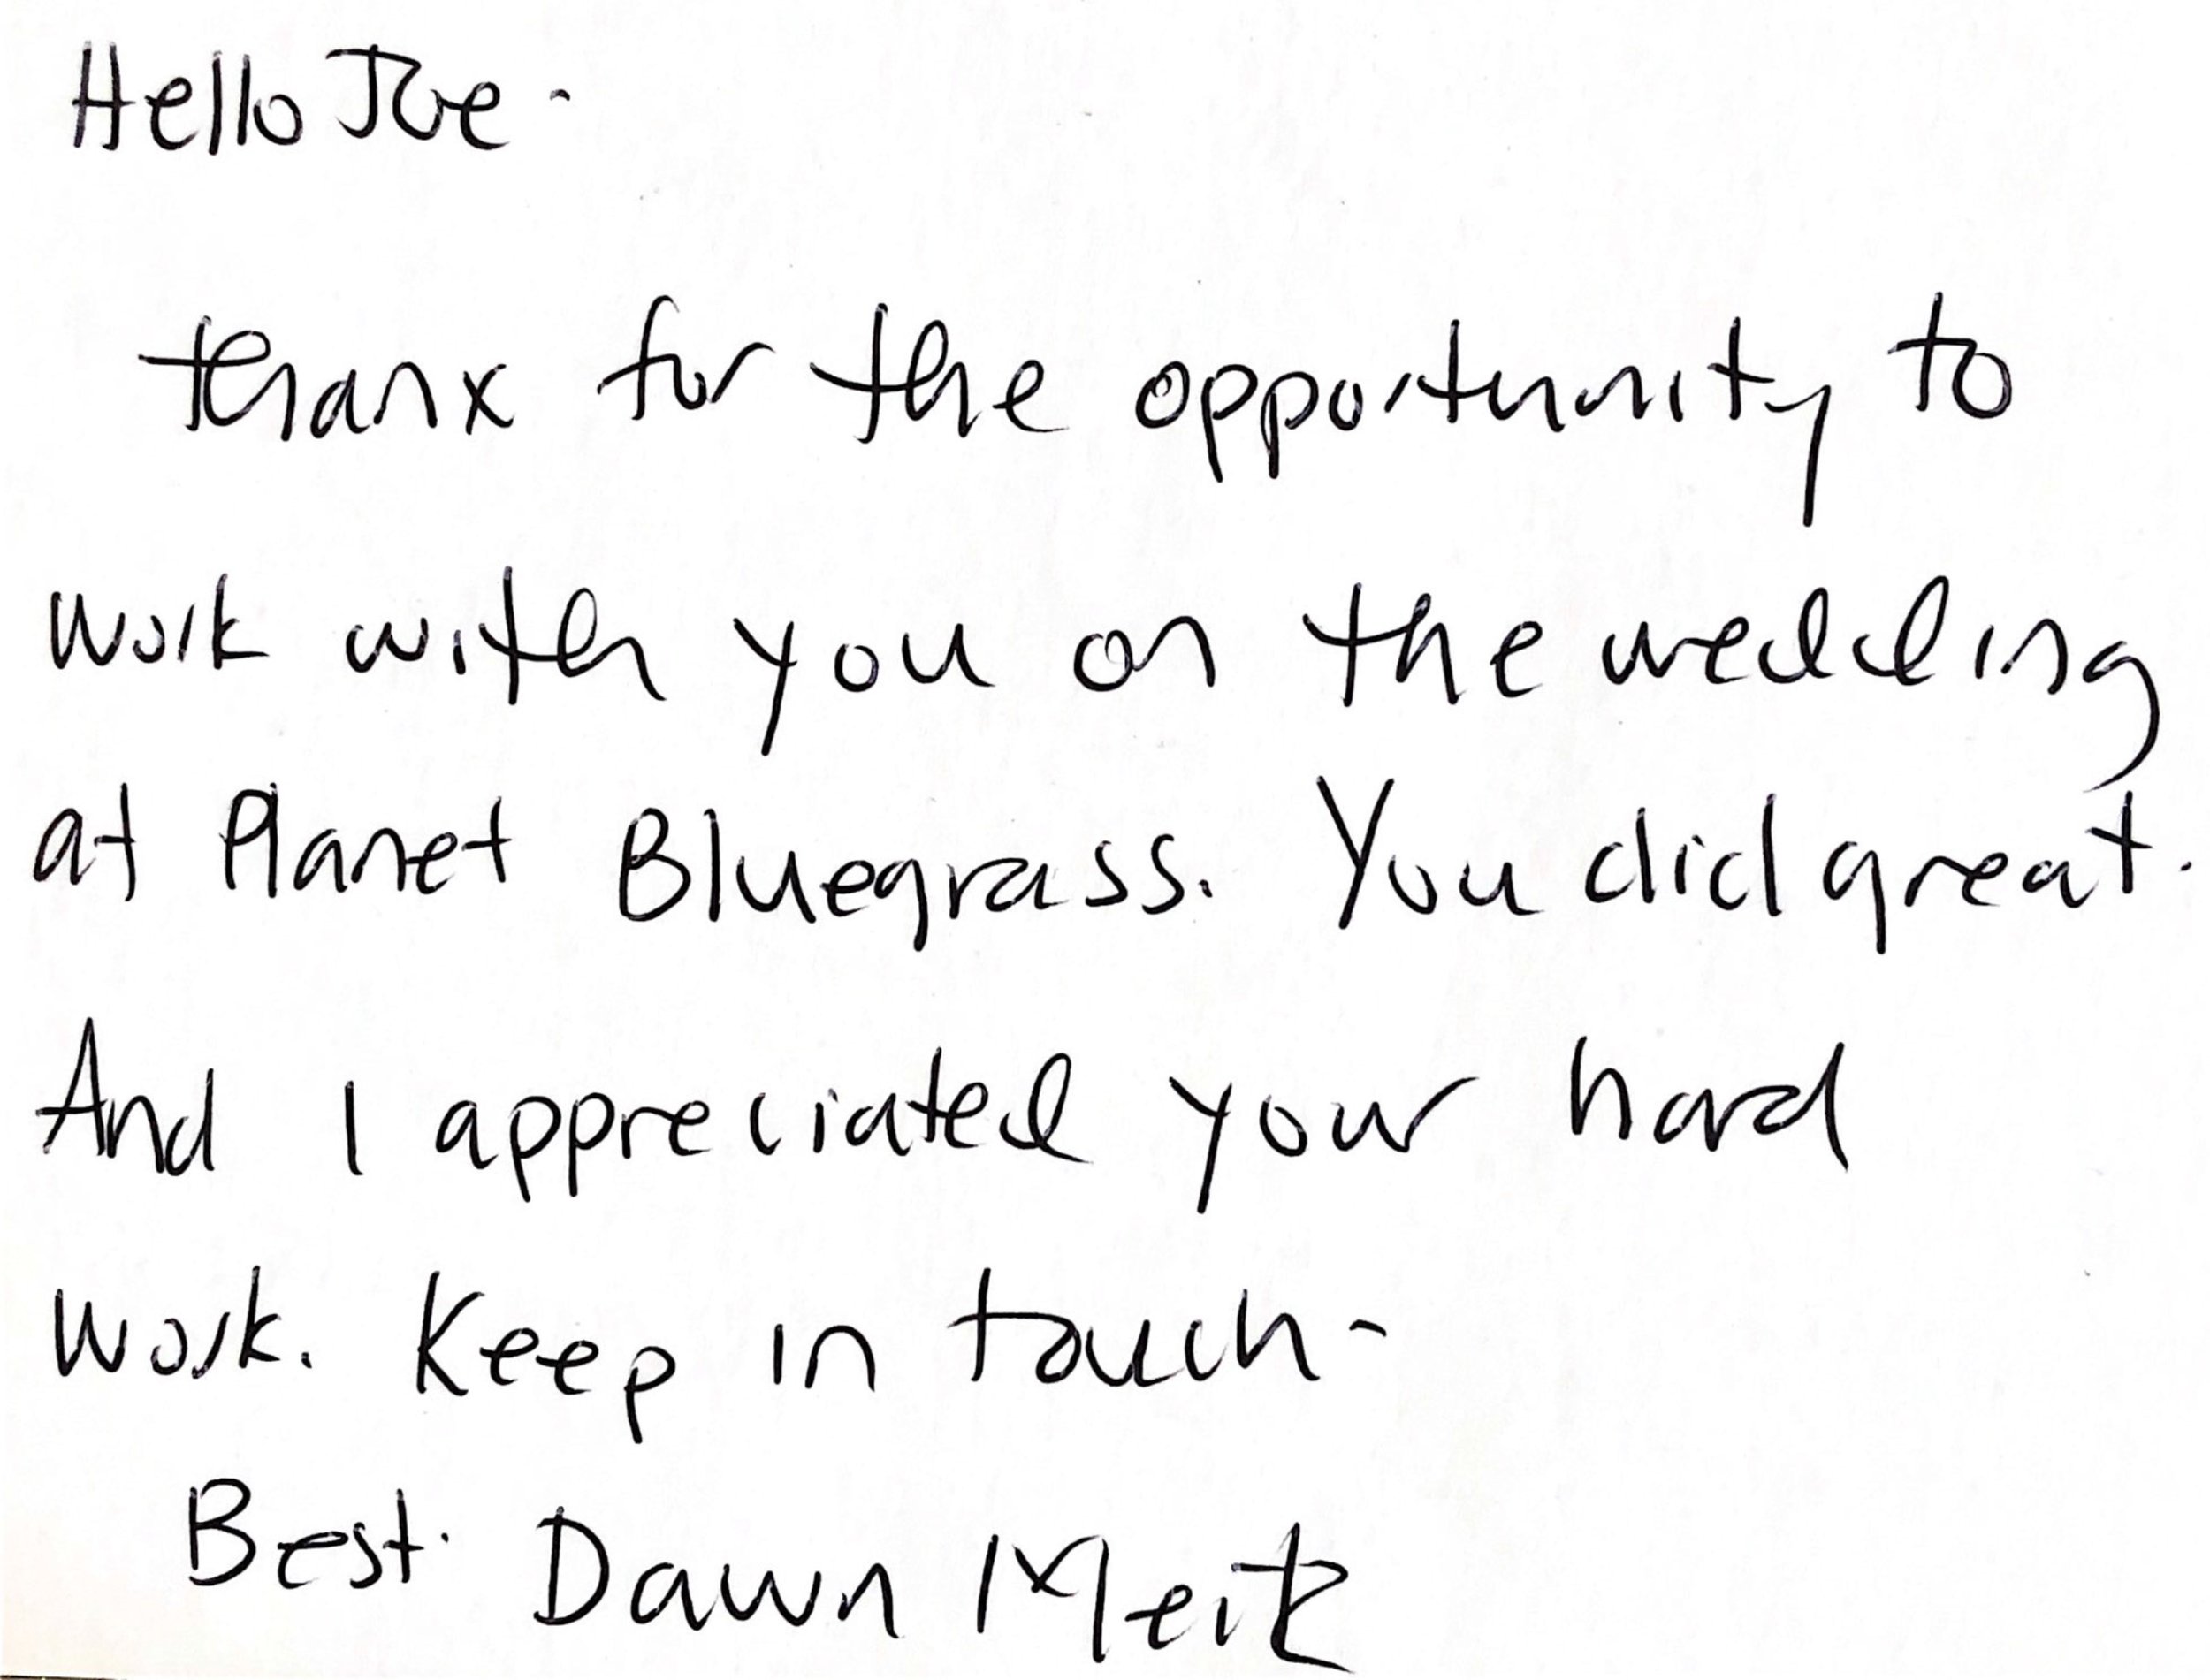 Hello Joe -
thanx for the opportunity to
work with you on the wedding
at Planet Bluegrass. You did great.
And I appreciated your hard
work. Keep in touch -
Best. Dawn